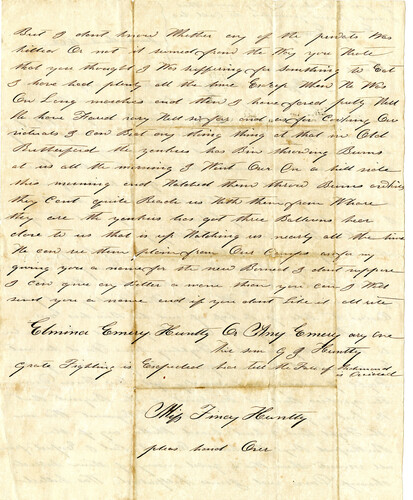 But I dont know Whether any of the privats Was
killed Or not it semed from the Way you Wrote
that you thought I Was suffering for something to Eat
I have had plenty all the time Except When We Was
On Long marches and then I have fared prity Well
We have Fared very Well so far and as for Cooking Our
victuals I Can Beat any thing thing at that in Old
Rutherford the yankees has Bin throwing Bums
at us all the morning I Went Over On a hill
this morning and Watched them throw Bums
they Cant quite Reach us With them from Whare
they are the yankees has got three Balloons hear
close to us that is up Watching us nearly all the time
We can see them plain from Our Camps as for my
giving you a name for the new Burned I dont suppose
I can give any better a name than you can I Will
send you a name and if you dont Like it all rite
Elmina Emery Huntly Or Amy Emery any One
This from G J Huntly
Grate Fighting is Expected hear till the Fate of Richmond
is Decided
Miss Tincy Huntly
pleas hand Over